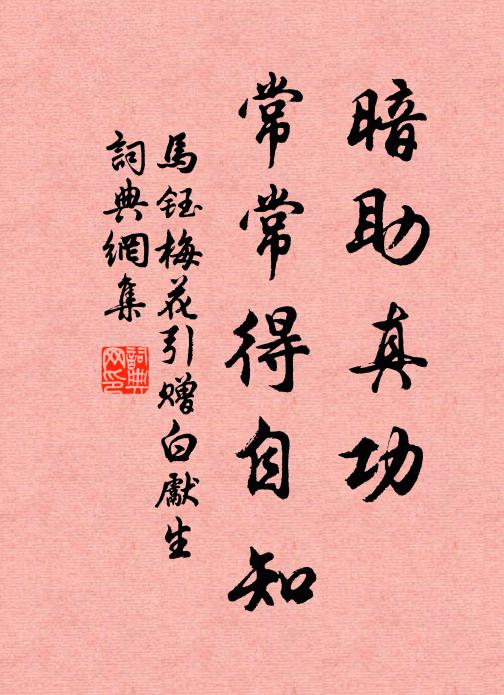 暗助真功
常常得自知
馬鈺梅花引贈白獻生
詞典網集
詞典
网印